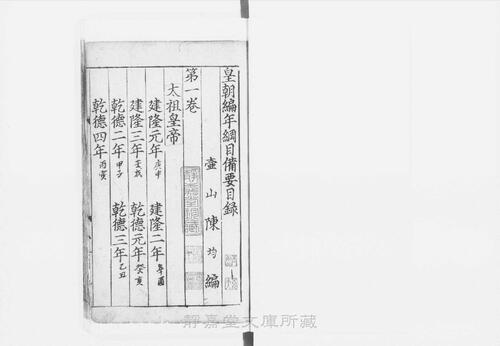 皇朝編年綱目備要目錄
壺山陳均編
第一卷
太祖皇帝
建隆元年庚申 建隆二年辛酉
建隆三年壬戌 乾德元年癸亥
乾德二年甲子 乾德三年乙丑
乾德四年丙寅
静嘉堂文庫所藏